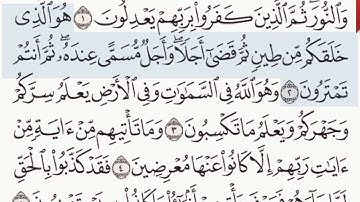 وَٱلنُّورَ ثُمَّ ٱلَّذِينَ كَفَرُوا۟ بِرَبِّهِمْ يَعْدِلُونَ ١ هُوَ ٱلَّذِى
خَلَقَكُم مِّن طِينٍ ثُمَّ قَضَىٰٓ أَجَلًا وَأَجَلٌ مُّسَمًّى عِندَهُۥ ثُمَّ أَنتُمْ
تَمْتَرُونَ ٢ وَهُوَ ٱللَّهُ فِى ٱلسَّمَٰوَٰتِ وَفِى ٱلْأَرْضِ يَعْلَمُ سِرَّكُمْ
وَجَهْرَكُمْ وَيَعْلَمُ مَا تَكْسِبُونَ ٣ وَمَا تَأْتِيهِم مِّنْ ءَايَةٍ مِّنْ
ءَايَٰتِ رَبِّهِمْ إِلَّا كَانُوا۟ عَنْهَا مُعْرِضِينَ ٤ فَقَدْ كَذَّبُوا۟ بِٱلْحَقِّ